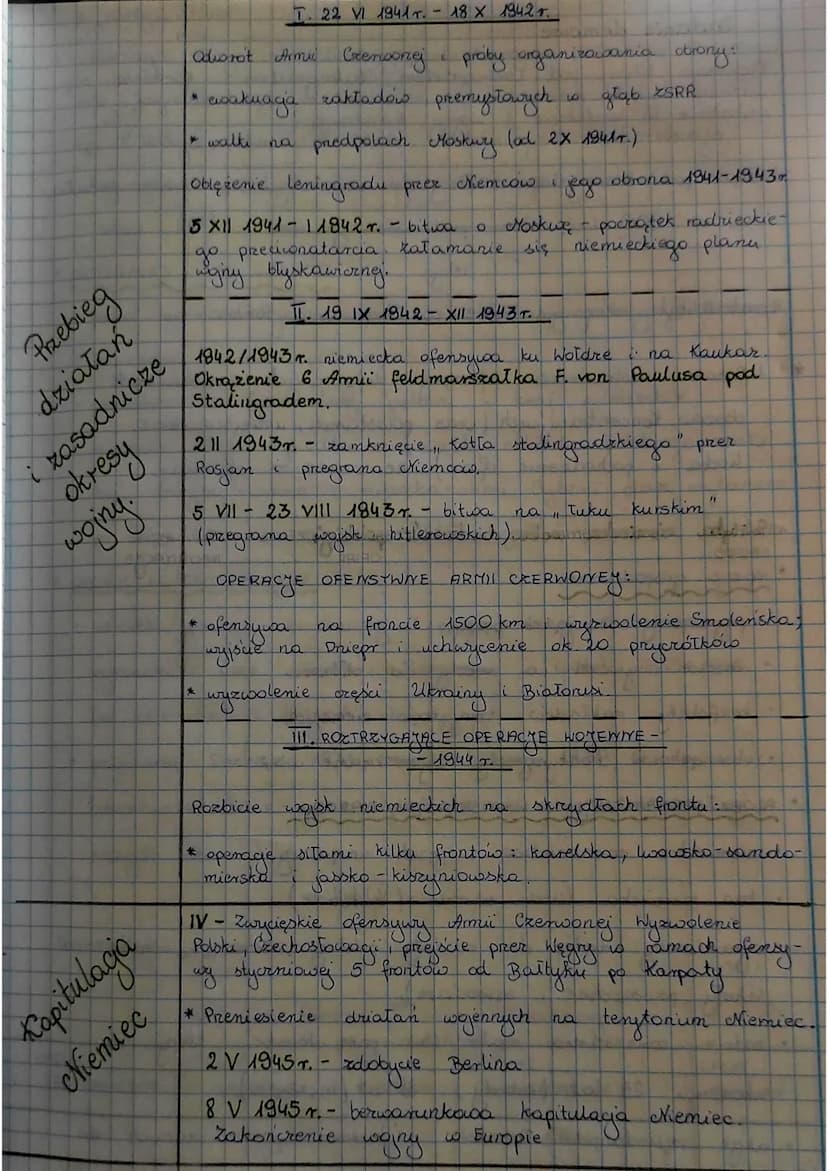 I. 22 VI 1941 r. - 18 X 1942 r.
Odwrót Armii Czerwonej i próby organizowania obrony:
* ewakuacja zakładów przemysłowych w głąb ZSRR
* walki na przedpolach Moskwy (od 2X 1941r.)
Oblężenie Leningradu przez Niemców i jego obrona 1941-1943r
5 XII 1941 - I 1942 r. - bitwa o Moskwę - początek radzieckie-
go przeciwnatarcia. Załamanie się niemieckiego planu
wojny błyskawicznej.
Przebieg
działań
i zasadnicze
okresy
wojny.
II. 19 IX 1942 - XII 1943 r.
1942/1943 r. niemiecka ofensywa ku Wołdze i na Kaukaz.
Okrążenie 6 Armii feldmarszałka F. von Paulusa pod
Stalingradem.
2 II 1943r. - zamknięcie „Kotła stalingradzkiego" przez
Rosjan i przegrana Niemców.
5 VII - 23 VIII 1943 r. - bitwa na „Łuku kurskim"
(przegrana wojsk hitlerowskich).
OPERACJE OFENSYWNE ARMII CZERWONEJ:
* ofensywa na froncie 1500 km i wyzwolenie Smoleńska;
wyjście na Dniepr i uchwycenie ok 20 przyczółków
* wyzwolenie części Ukrainy i Białorusi.
III. ROZTRZYGAJĄCE OPERACJE WOJENNE -
- 1944 r.
Rozbicie wojsk niemieckich na skrzydłach frontu:
* operacje siłami kilku frontów: karelska, lwowsko-sando-
mierska i jassko-kiszyniowska.
Kapitulacja
Niemiec
IV - Zwycięskie ofensywy Armii Czerwonej Wyzwolenie
Polski, Czechosłowacji, przejście przez Węgry w ramach ofensy-
wy styczniowej 5 frontów od Bałtyku po Karpaty
* Przeniesienie działań wojennych na terytorium Niemiec.
2 V 1945 r. - zdobycie Berlina
8 V 1945 r. - bezwarunkowa kapitulacja Niemiec.
Zakończenie wojny w Europie